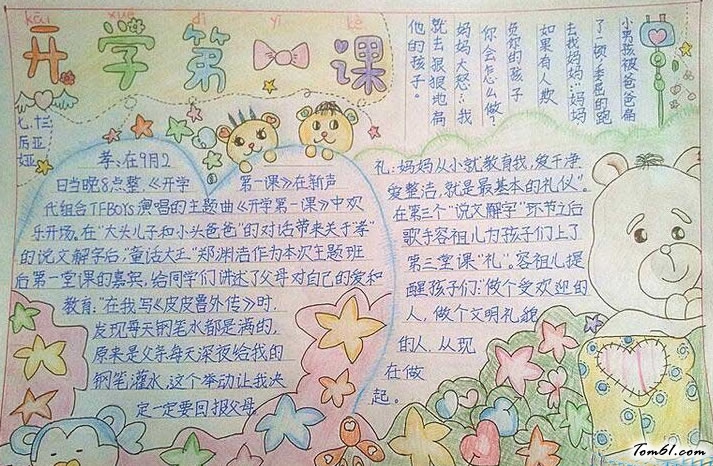 kāi xué dì yī kè
开学第一课
小男孩被爸爸扁
了一顿,委屈的跑
去找妈妈:妈妈
如果有人欺
负你的孩子
你会怎么做?
妈妈大怒:我
就去狠狠地扁
他的孩子。
七.十三
孝:在9月2
日当晚8点整,《开学第一课》在新声
代组合TFBOYS演唱的主题曲《开学第一课》中欢
乐开场。在"大头儿子和小头爸爸"的对话带来关于"孝"
的说文解字后,"童话大王"郑渊洁作为本次主题班
后第一堂课的嘉宾,给同学们讲述了父母对自己的爱和
教育:"在我写《皮皮鲁外传》时,
发现每天钢笔水都是满的,
原来是父亲每天深夜给我的
钢笔灌水,这个举动让我决
定一定要回报父母。
礼:妈妈从小就教育我,爱干净
爱整洁,就是最基本的礼仪"。
在第三个"说文解字"环节之后
歌手容祖儿为孩子们上了
第三堂课"礼"。容祖儿提
醒孩子们:"做个受欢迎的
人,做个文明礼貌
的人,从现
在做
起。
Tom61.com